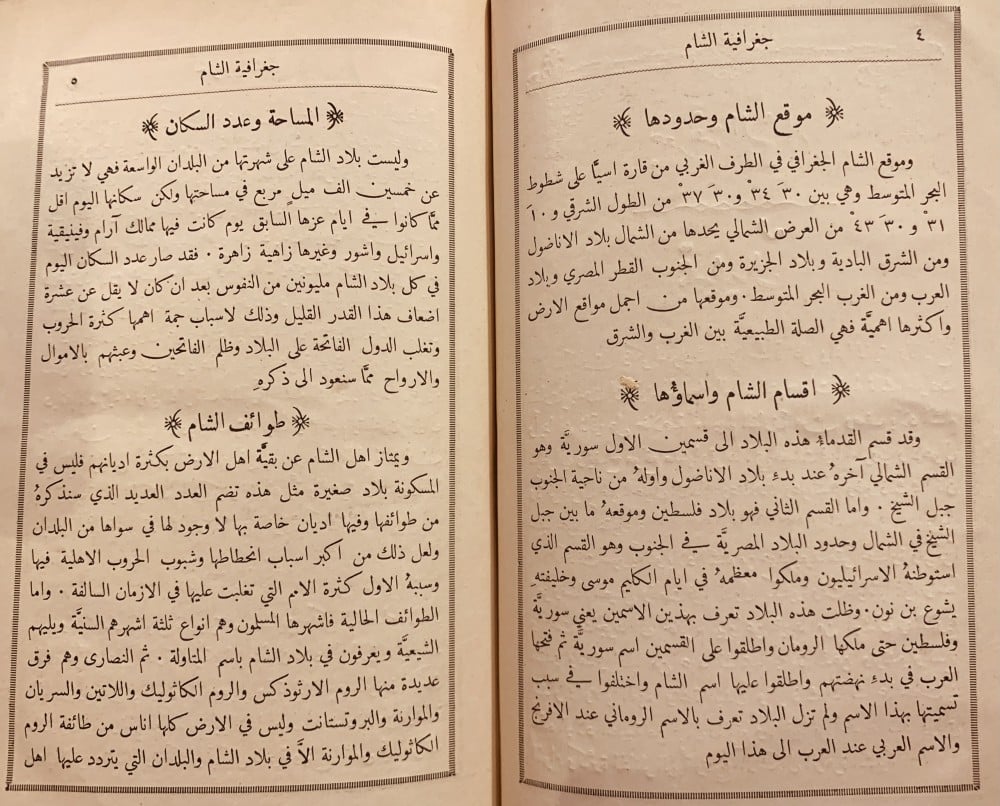 ٤
جغرافية الشام
موقع الشام وحدودها
وموقع الشام الجغرافي في الطرف الغربي من قارة اسيَّا على شطوط
البحر المتوسط وهي بين ٣٠َ ٣٤ْ و٣٠َ ٣٧ْ من الطول الشرقي و١٠َ
٣١ْ و ٣٠َ ٤٣ْ من العرض الشمالي يحدها من الشمال بلاد الاناضول
ومن الشرق البادية وبلاد الجزيرة ومن الجنوب القطر المصري وبلاد
العرب ومن الغرب البحر المتوسط. وموقعها من اجمل مواقع الارض
واكثرها اهميَّة فهي الصلة الطبيعيَّة بين الغرب والشرق
اقسام الشام واسماؤها
وقد قسم القدماءُ هذه البلاد الى قسمين الاول سوريَّة وهو
القسم الشمالي آخرهُ عند بدء بلاد الاناضول واولهُ من ناحية الجنوب
جبل الشيخ . واما القسم الثاني فهو بلاد فلسطين وموقعهُ ما بين جبل
الشيخ في الشمال وحدود البلاد المصريَّة في الجنوب وهو القسم الذي
استوطنهُ الاسرائيليون وملكوا معظمهُ في ايام الكليم موسى وخليفتهِ
يشوع بن نون. وظلت هذه البلاد تعرف بهذين الاسمين يعني سوريَّة
وفلسطين حتى ملكها الرومان واطلقوا على القسمين اسم سوريَّة ثم فتحها
العرب في بدء نهضتهم واطلقوا عليها اسم الشام واختلفوا في سبب
تسميتها بهذا الاسم ولم تزل البلاد تعرف بالاسم الروماني عند الافرنج
والاسم العربي عند العرب الى هذا اليوم
جغرافية الشام
٥
المساحة وعدد السكان
وليست بلاد الشام على شهرتها من البلدان الواسعة فهي لا تزيد
عن خمسين الف ميل مربع في مساحتها ولكن سكانها اليوم اقل
ممَّا كانوا في ايام عزها السابق يوم كانت فيها ممالك آرام وفينيقية
واسرائيل واشور وغيرها زاهية زاهرة . فقد صار عدد السكان اليوم
في كل بلاد الشام مليونين من النفوس بعد ان كان لا يقل عن عشرة
اضعاف هذا القدر القليل وذلك لاسباب جمة اهمها كثرة الحروب
وتغلب الدول الفاتحة على البلاد وظلم الفاتحين وعبثهم بالاموال
والارواح ممَّا سنعود الى ذكرهِ
طوائف الشام
ويمتاز اهل الشام عن بقيَّة اهل الارض بكثرة اديانهم فليس في
المسكونة بلاد صغيرة مثل هذه تضم العدد العديد الذي سنذكرهُ
من طوائفها وفيها اديان خاصة بها لا وجود لها في سواها من البلدان
ولعل ذلك من اكبر اسباب انحطاطها وشبوب الحروب الاهلية فيها
وسببهُ الاول كثرة الامم التي تغلبت عليها في الازمان السالفة . واما
الطوائف الحالية فاشهرها المسلمون وهم انواع ثلثة اشهرهم السنيَّة ويليهم
الشيعيَّة ويعرفون في بلاد الشام باسم المتاولة . ثم النصارى وهم فرق
عديدة منها الروم الارثوذكس والروم الكاثوليك واللاتين والسريان
والموارنة والبروتستانت وليس في الارض كلها اناس من طائفة الروم
الكاثوليك والموارنة الاَّ في بلاد الشام والبلدان التي يتردد عليها اهل